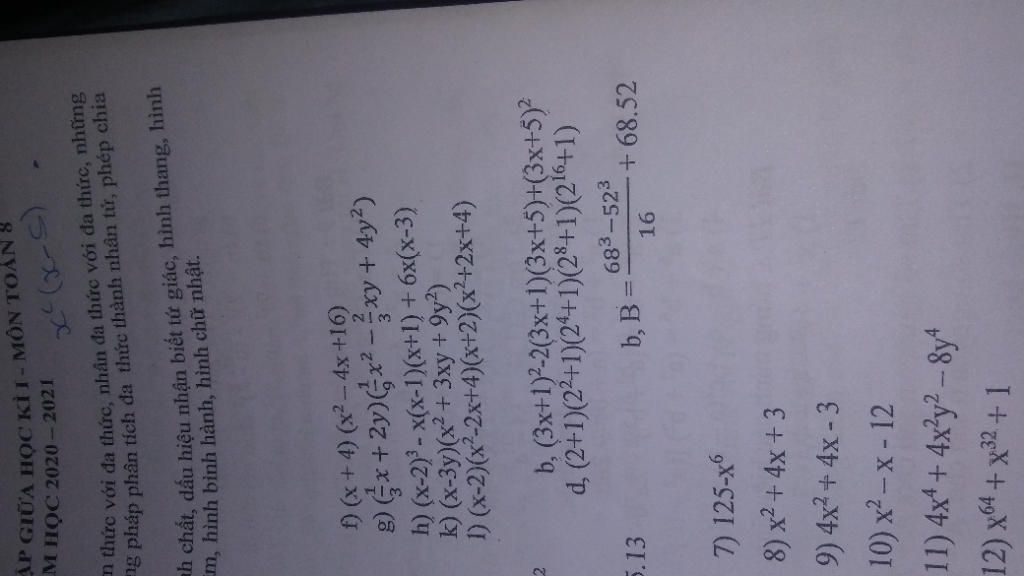 ẬP GIỮA HỌC KÌ I - MÔN TOÁN 8
M HỌC 2020 – 2021
x² (x-5)
n thức với đa thức, nhân đa thức với đa thức, những
ng pháp phân tích đa thức thành nhân tử, phép chia
nh chất, dấu hiệu nhận biết tứ giác, hình thang, hình
m, hình bình hành, hình chữ nhật.
f) (x + 4) (x² – 4x +16)
g) (1/3 x + 2y)(1/9 x² – 2/3 xy + 4y²)
h) (x-2)³ - x(x-1)(x+1) + 6x(x-3)
k) (x-3y)(x² + 3xy + 9y²)
l) (x-2)(x²-2x+4)(x+2)(x²+2x+4)
b, (3x+1)²-2(3x+1)(3x+5)+(3x+5)²
2 d, (2+1)(2²+1)(2⁴+1)(2⁸+1)(2¹⁶+1)
5.13 b, B = (68³ – 52³)/16 + 68.52
7) 125-x⁶
8) x² + 4x + 3
9) 4x² + 4x - 3
10) x² – x - 12
11) 4x⁴ + 4x²y² – 8y⁴
12) x⁶⁴ + x³² + 1